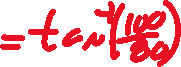 = tan⁻¹(100/80)